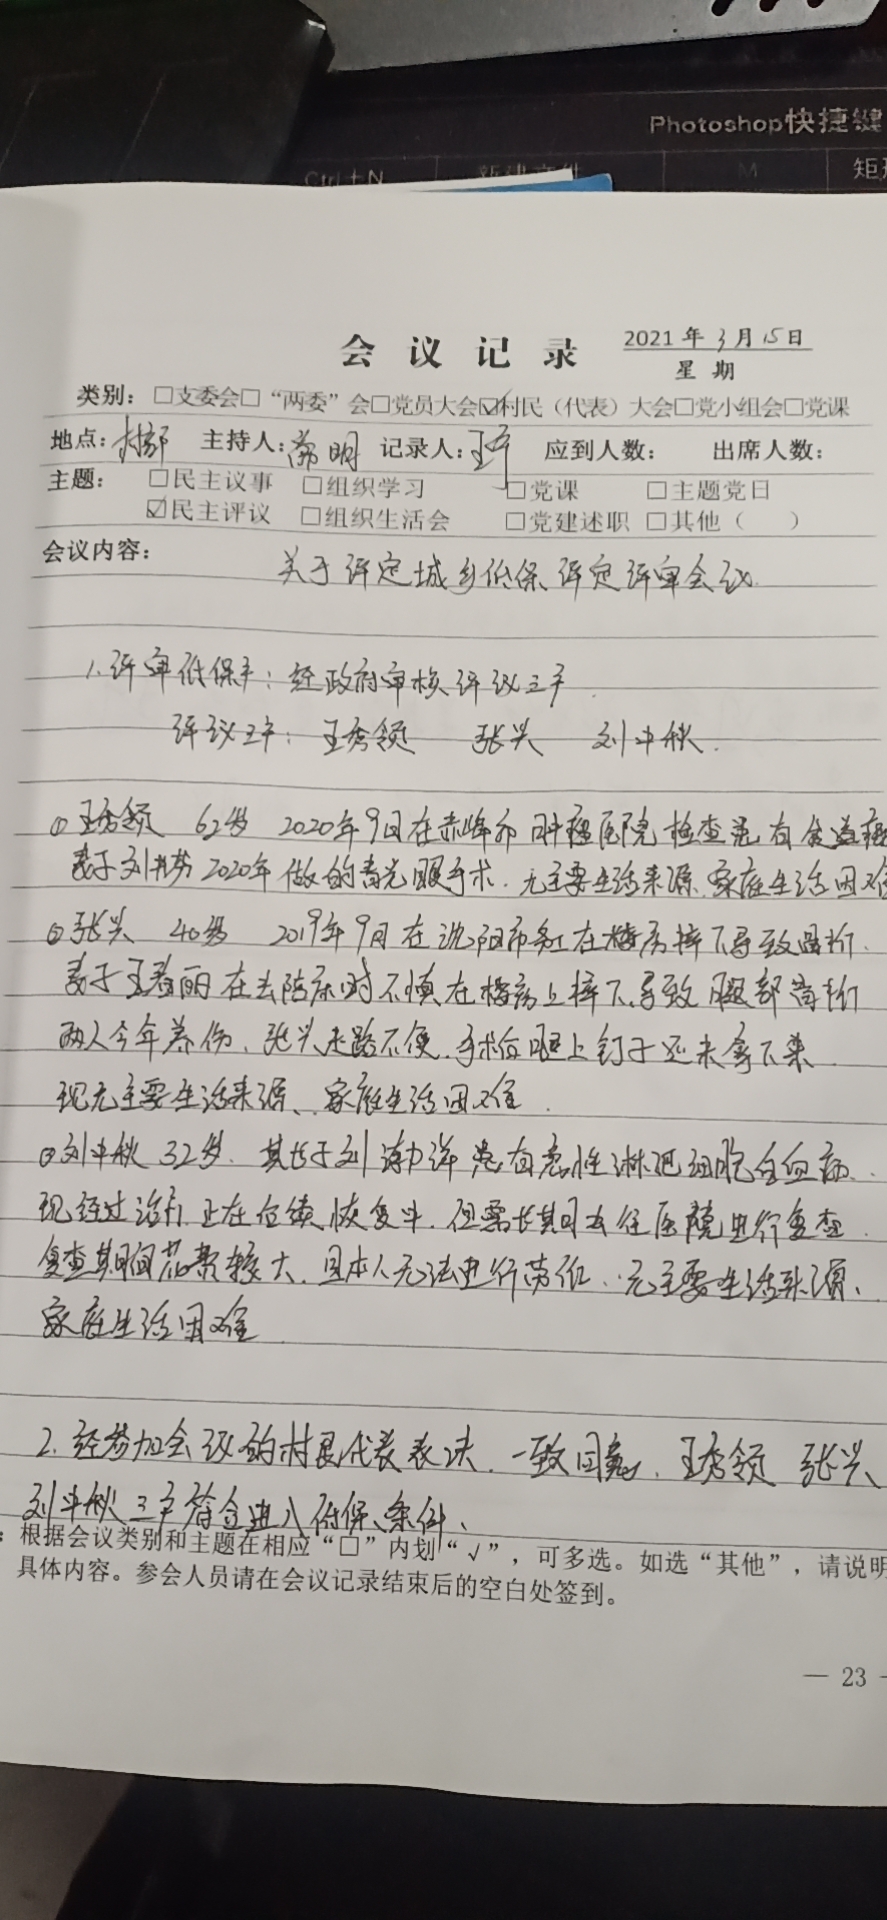 Photoshop快捷键
Ctrl+N 新建文件 M 矩形
会议记录 2021年3月15日
星期
类别：□支委会□“两委”会□党员大会☑村民（代表）大会□党小组会□党课
地点：村部 主持人：明 记录人：王 应到人数： 出席人数：
主题： □民主议事 □组织学习 □党课 □主题党日
☑民主评议 □组织生活会 □党建述职 □其他（ ）
会议内容： 关于评定城乡低保评定评审会议
1.评审低保户：经政府审核评议三户
评议三户：王秀领 张兴 刘中秋.
①王秀领 62岁 2020年9月在赤峰市肿瘤医院检查患有食道癌
妻子刘 2020年做的青光眼手术.无主要生活来源、家庭生活困难
②张兴 40岁 2019年9月在沈阳市务工在楼房摔下导致 折.
妻子王春丽在去陪床时不慎在楼房上摔下.导致腿部骨折
两人今年养伤、张兴走路不便.手术位腿上钉子还未拿下来
现无主要生活来源、家庭生活困难.
③刘中秋 32岁.其长子刘 洋患有急性淋巴细胞白血病.
现经过治疗.正在位续恢复中.但需长期去往医院进行复查.
复查期间花费较大.且本人无法进行劳作.无主要生活来源、
家庭生活困难.
2.经参加会议的村民代表表决.一致同意.王秀领 张兴
刘中秋三户符合进入低保条件、
：根据会议类别和主题在相应“□”内划“√”，可多选。如选“其他”，请说明
具体内容。参会人员请在会议记录结束后的空白处签到。
— 23